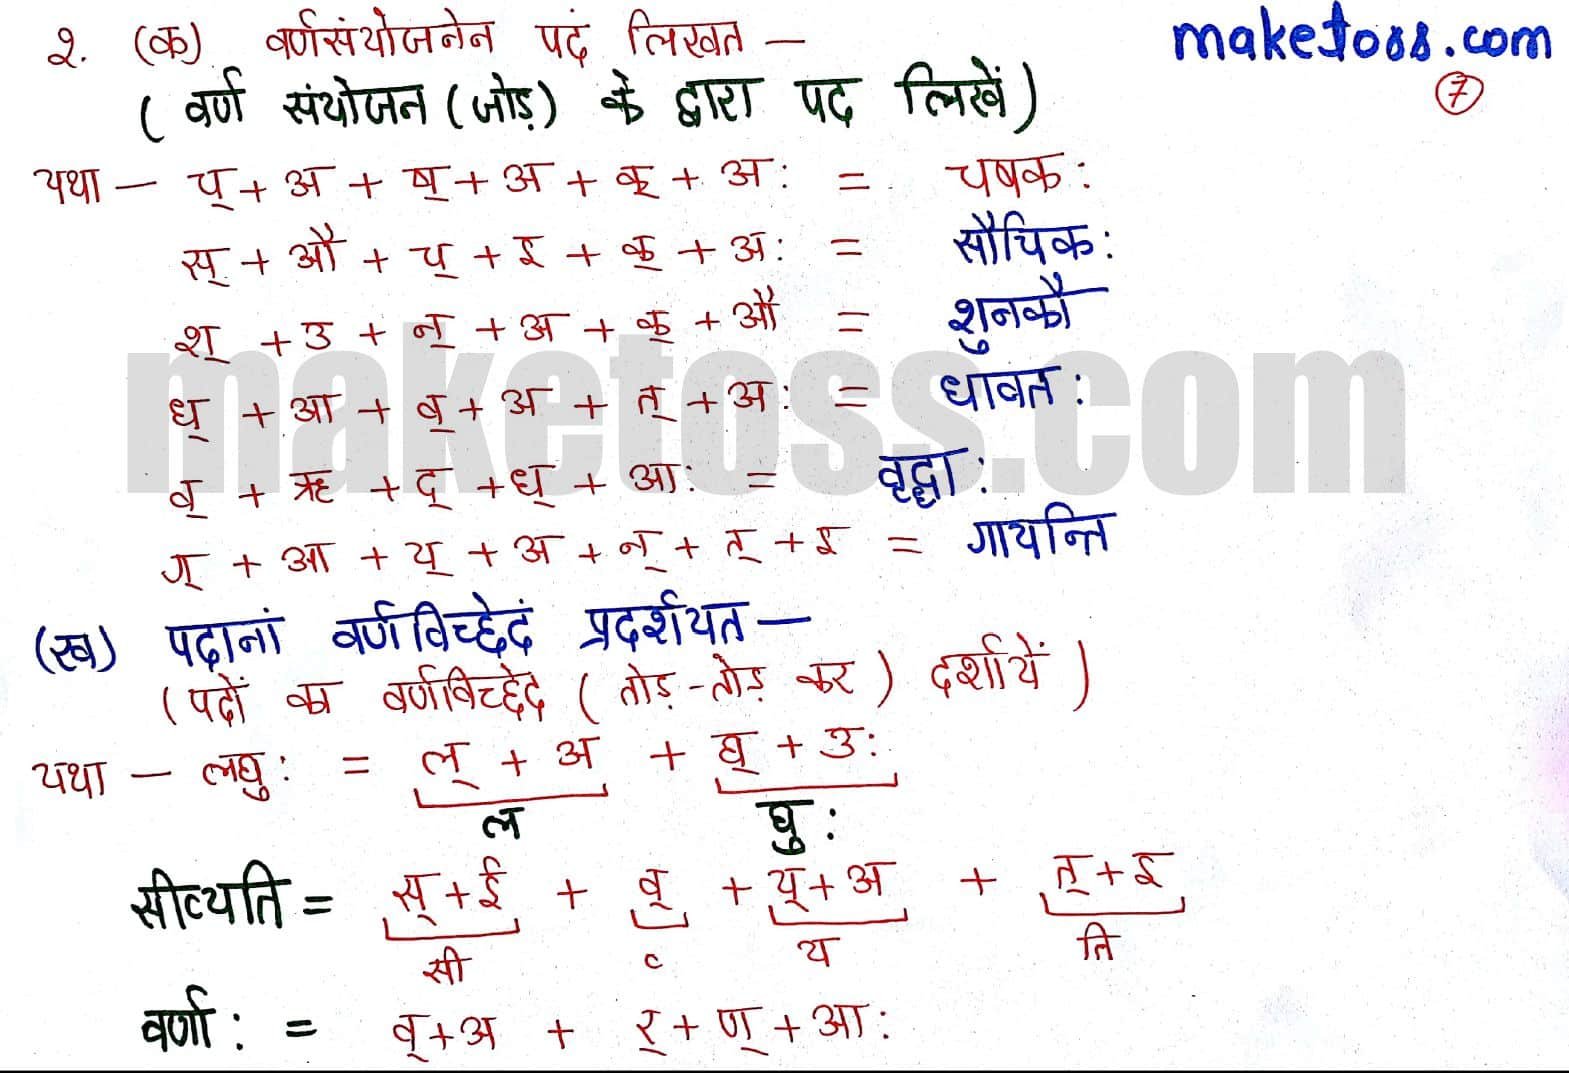 २. (क) वर्णसंयोजनेन पदं लिखत —
maketoss.com
(वर्ण संयोजन (जोड़) के द्वारा पद लिखें)
7
यथा — च् + अ + ष् + अ + क् + अः = चषकः
स् + औ + च् + इ + क् + अः = सौचिकः
श् + उ + न् + अ + क् + औ = शुनकौ
maketoss.com
ध् + आ + व् + अ + त् + अः = धावतः
व् + ऋ + द् + ध् + आः = वृद्धाः
ग् + आ + य् + अ + न् + त् + इ = गायन्ति
(ख) पदानां वर्णविच्छेदं प्रदर्शयत —
(पदों का वर्णविच्छेद (तोड़-तोड़ कर) दर्शायें)
यथा — लघुः = ल् + अ + घ् + उः
ल घुः
सीव्यति = स् + ई + व् + य् + अ + त् + इ
सी य ति
वर्णाः = व् + अ + र् + ण् + आः